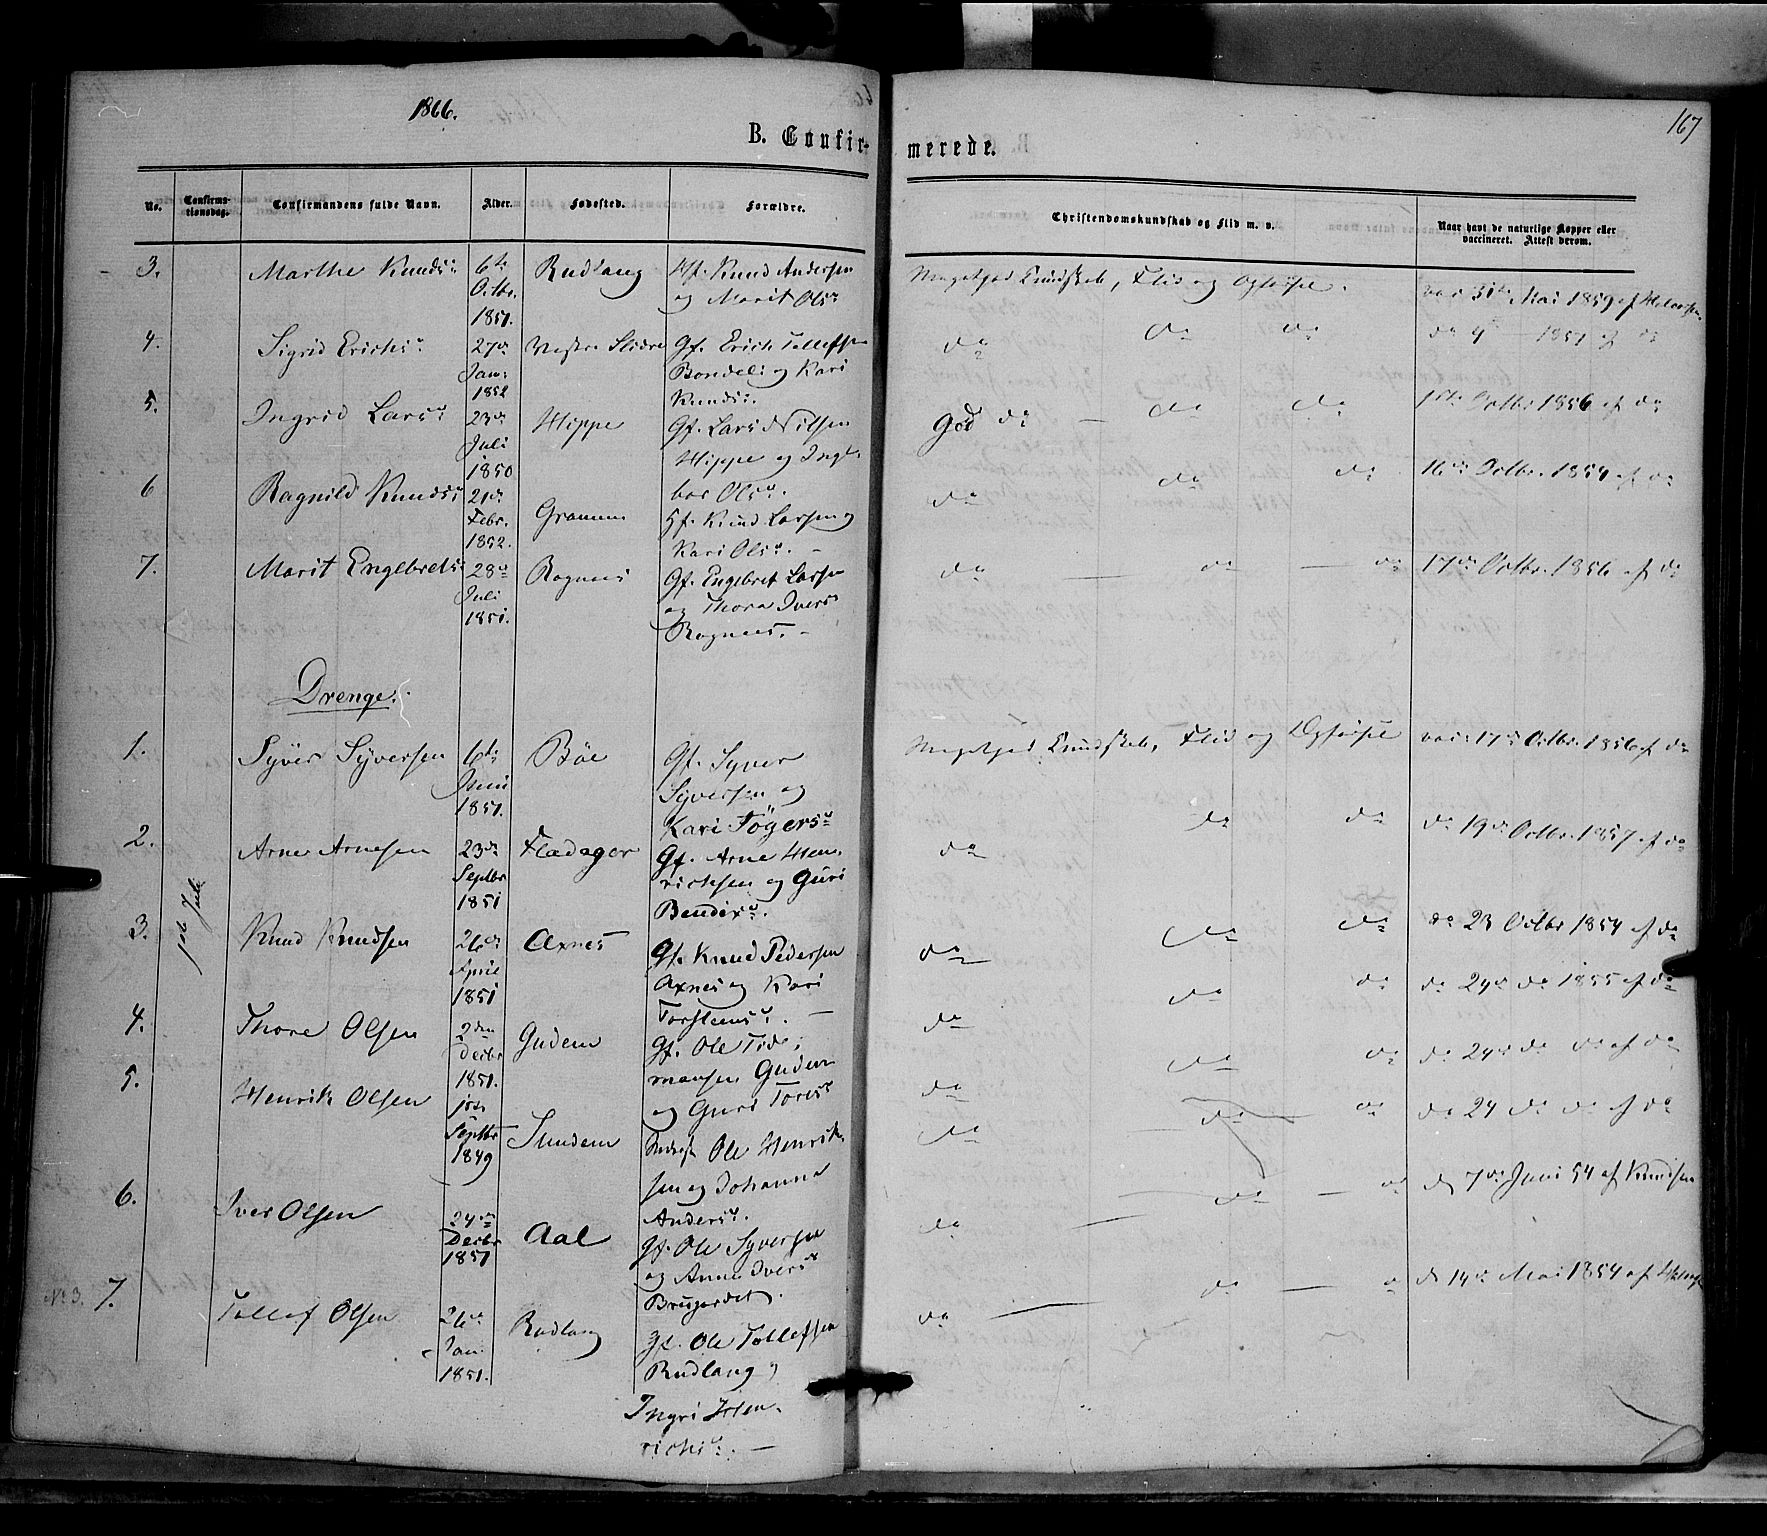 1866.
167
B. Confir-
merede.
No.
Confirma-
tionsdag.
Confirmandens fulde Navn.
Alder.
Fødested.
Forældre.
Christendomskundskab og Flid m. v.
Naar havt de naturlige Kopper eller
vaccineret. Attest derom.
3. Marthe Knudsd: 6te Rudlang Gf. Knud Andersen Megetgod Kundskab, Flid og Opførsel. vac: 31te Mai 1859 af
Octbr. og Marit Olsd
1851.
4. Sigrid Erichsd 27de Vestre Slidre Gf. Erich Tollefsen do do do do 1851 af do
Jan: Bondeli og Kari
1852 Knudsd.
5. Ingrid Larsd 23de Hippe Gf. Lars Nilsen God do – do do Octbr. 1856 af do
Juli Hippe og Inge-
1850 bor Olsd.
6 Ragnild Knudsd 21de Gf. Knud Larsen og do do do 16de Octbr. 1854 af do
Febr. Kari Olsd. –
1852.
7. Marit Engebretsd 28de Rognaes Gf. Engebret Larsen do — do — do 17de Octbr. 1856 af do
Juli og Thora Iversd
1851. Rognaes. –
Drenge.
1ste Juli
1. Syver Syversen 6te Bøe Gf. Syver Megetgod Kundskab, Flid og Opførsel vac: 17de Octbr. 1856 af do
Juni Syversen og
1851. Kari
2. Arne Arnesen 23de Fladager Gf. Arne Hen- do do do do 19de Octbr. 1857 af do
Septbr richsen og Guri
1851 Bendixd.
3. Knud Knudsen 26de Axnes Gf. Knud Pedersen do do do do 23 Octbr 1854 af do
April Axnes og Kari
1851 Torsteinsd. –
4. Thore Olsen 2den Gudem Gf. Ole Tide- do do do do 24de do 1855 af do
Decbr mansen Gudem
1851. og Guri Toresd
5. Henrik Olsen 1ste Sundem Ole Henrik- do do do do 24de do do af do
Septbr sen og Johanna
1849 Andersd.
6. Iver Olsen 24de Aal Gf. Ole Syversen do do do do 24 do do af do
Decbr og Anne Iversd
1851 Brugardet.
No 3. 7. Tollef Olsen 26de Rudlang Gf. Ole Tollefsen do — do — do do 7de Juni 54 af Knudsen
Jan. Rudlang og
1851. Ingri Hen-
richsd. –
do — do — do do 14de Mai 1854 af